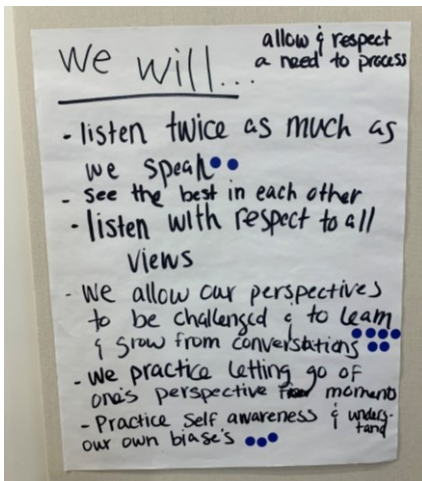 We will...
allow & respect
a need to process
- listen twice as much as
we speak
- See the best in each other
- listen with respect to all
views
- We allow our perspectives
to be challenged & to learn
& grow from converstations
- We practice letting go of
one's perspective moments
- Practice self awareness & unders-
tand
our own biase's